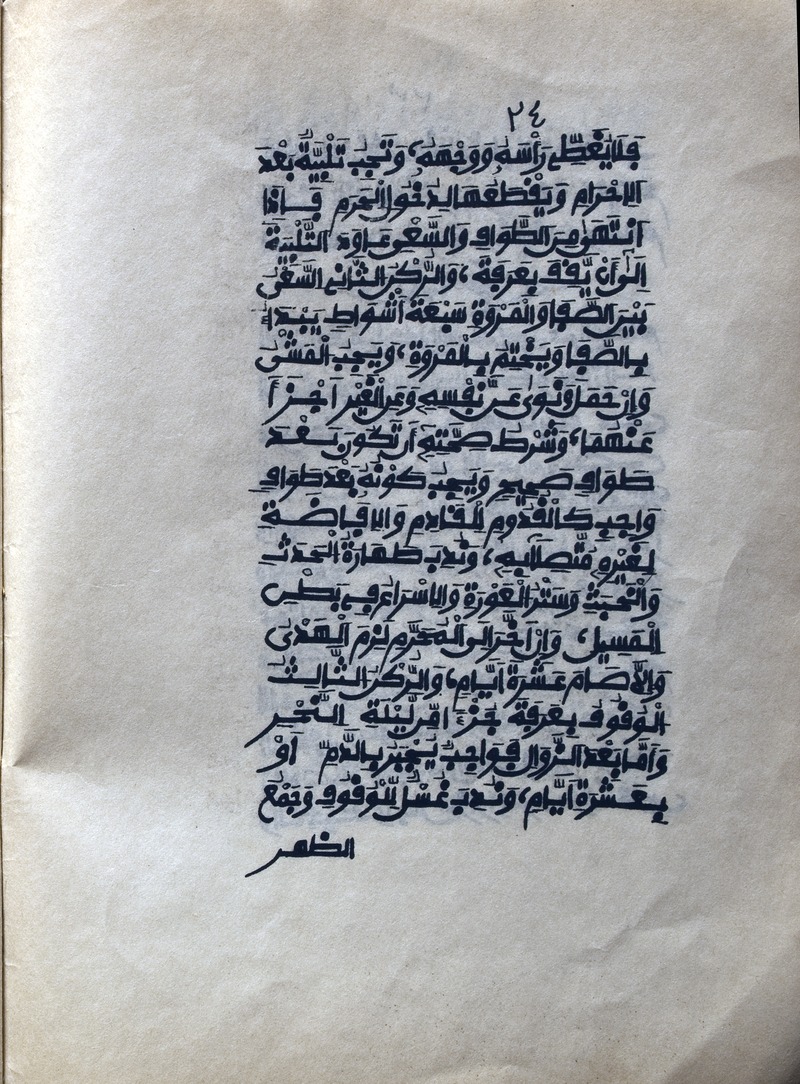 ٢٤
فَلَا يُغَطِّي رَأْسَهُ وَوَجْهَهُ، وَتَجِبُ تَلْبِيَةٌ بَعْدَ
الِاحْرَامِ وَيَقْطَعُهَا لِدُخُولِ الْحَرَمِ فَإِذَا
انْتَهَى مِنَ الطَّوَافِ وَالسَّعْيِ عَاوَدَ التَّلْبِيَةَ
إِلَى أَنْ يَّقِفَ بِعَرَفَةَ، وَالرُّكْنُ الثَّانِي السَّعْيُ
بَيْنَ الصَّفَا وَالْمَرْوَةِ سَبْعَةَ أَشْوَاطٍ يَبْدَءُ
بِالصَّفَا وَيَخْتِمُ بِالْمَرْوَةِ، وَيَجِبُ الْمَشْيُ
وَإِنْ حَمَلَ وَنَوَى عَنْ نَّفْسِهِ وَعَنِ الْغَيْرِ اجْزَأَ
عَنْهُمَا، وَشَرْطُ صِحَّتِهِ أَنْ تَكُونَ بَعْدَ
طَوَافٍ صَحِيحٍ وَيَجِبُ كَوْنُهُ بَعْدَ طَوَافٍ
وَاجِبٍ كَالْقُدُومِ لِلْقَادِمِ وَالِافَاضَةِ
لِغَيْرِهِ مُتَّصِلًا بِهِ، وَنُدِبَ طَهَارَةُ الْحَدَثِ
وَالْخَبَثِ وَسَتْرُ الْعَوْرَةِ وَالِاسْرَاعُ فِي بَطْنِ
الْمَسِيلِ، وَإِنْ أَخَّرَ إِلَى الْمُحَرَّمِ لَزِمَ الْهَدْيُ
وَإِلَّا صَامَ عَشَرَةَ أَيَّامٍ، وَالرُّكْنُ الثَّالِثُ
الْوُقُوفُ بِعَرَفَةَ جُزْءًا مِّن لَّيْلَةِ النَّحْرِ
وَأَمَّا بَعْدَ الزَّوَالِ فَوَاجِبٌ يُجْبَرُ بِالدَّمِ أَوْ
بِعَشَرَةِ أَيَّامٍ، وَنُدِبَ غُسْلٌ لِّلْوُقُوفِ وَجَمْعُ
الظهر